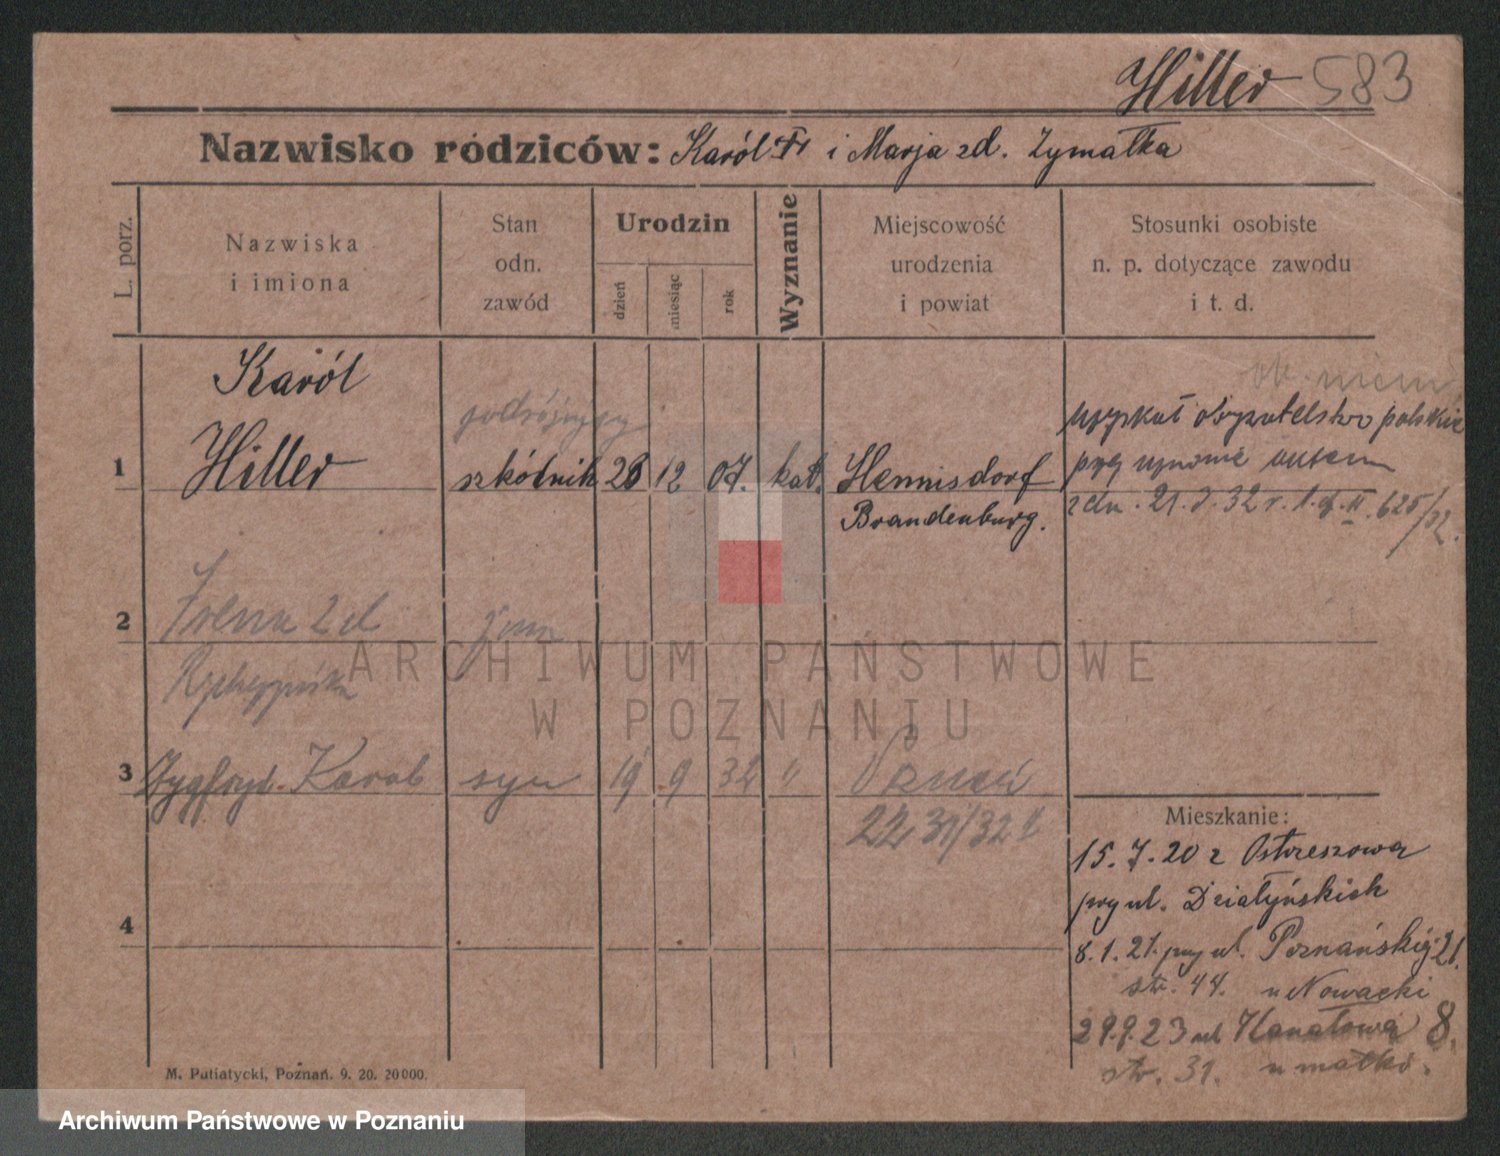 Hiller 583
Nazwisko rodziców: Karól Fr i Marja zd. Zymałka
L. porz.
Nazwiska
i imiona
Stan
odn.
zawód
Urodzin
dzień
miesiąc
rok
Wyznanie
Miejscowość
urodzenia
i powiat
Stosunki osobiste
n. p. dotyczące zawodu
i t. d.
Karól
ob. niem
podróżujący
uzyskał obywatelstwo polskie
1 Hiller szkólnik 28 12 07. kat. Hennisdorf
Brandenburg.
21. 32 r. 625/32.
2 Irena zd żona
3 Zygfryd Karol syn 19 9 32 " Poznań
Mieszkanie:
15. 7. 20 z Ostrzeszowa
przy ul. Działyńskich
4
8. 1. 21. przy ul. Poznańskiej 21.
str. 44. u Nowacki
29. 9. 23 ul Kanałowa 8.
str. 31. u matki.
M. Putiatycki, Poznań. 9. 20. 20 000.
ARCHIWUM PAŃSTWOWE
W POZNANIU
Archiwum Państwowe w Poznaniu